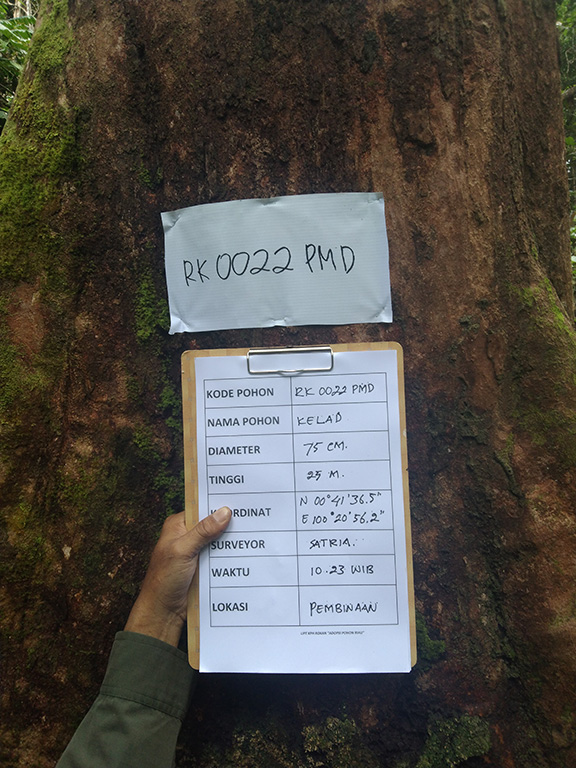 RK 0022 PMD
KODE POHON RK 0022 PMD
NAMA POHON KELAD
DIAMETER 75 CM.
TINGGI 25 M.
KOORDINAT N 00°41'36.5"
E 100°20'56.2"
SURVEYOR SATRIA.
WAKTU 10.23 WIB
LOKASI PEMBINAAN
"ADOPSI POHON RIAU"